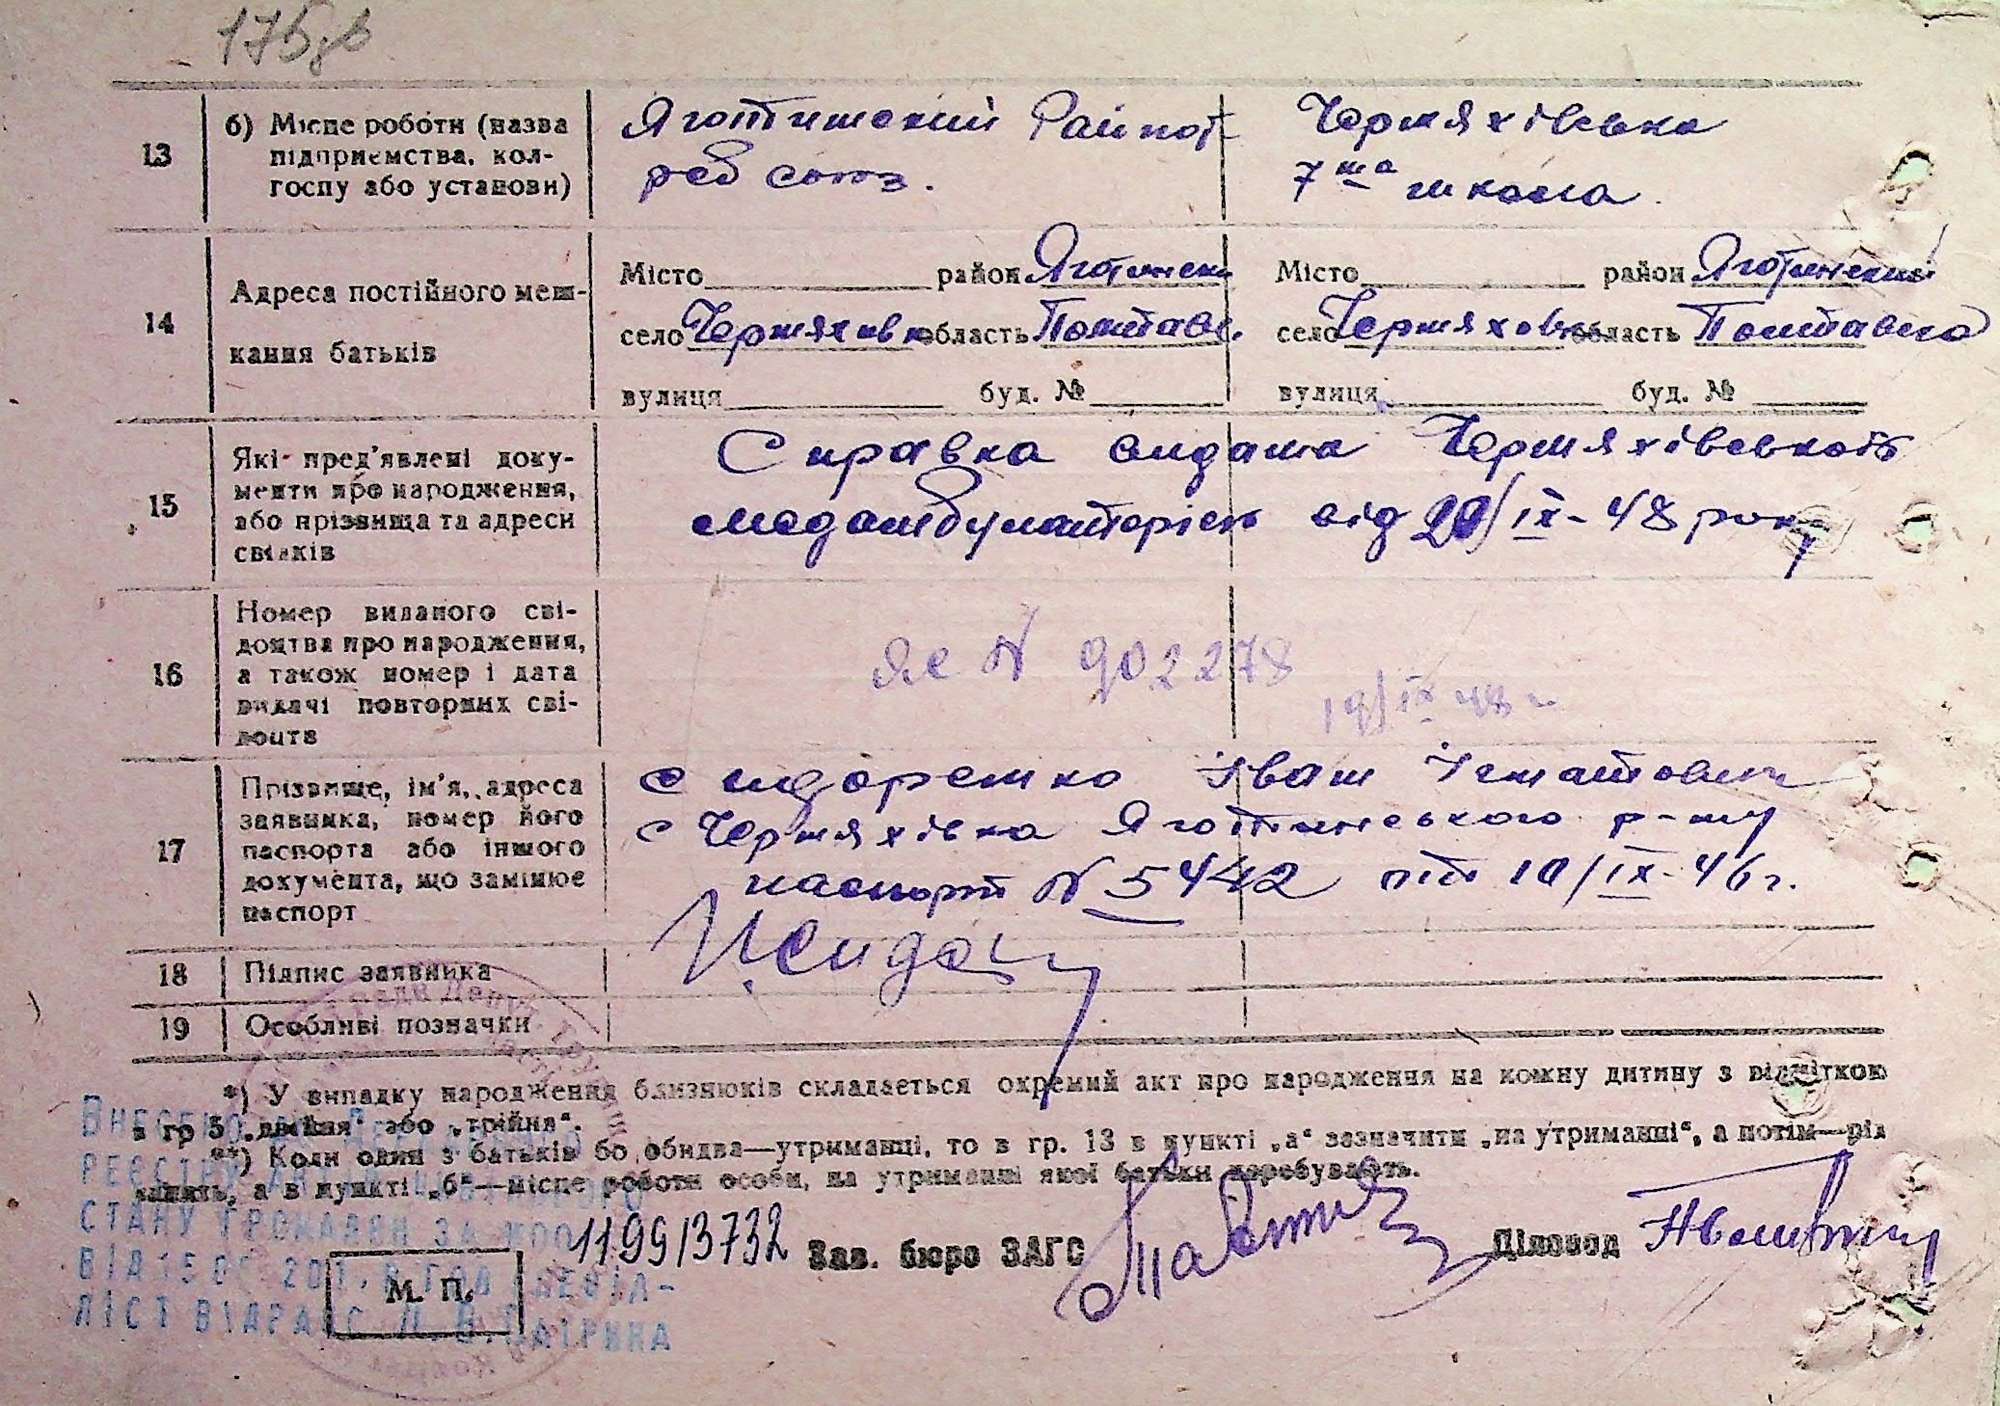 175зв
13 б) Місце роботи (назва підприємства, колгоспу або установи)
Яготинский Райпот-
реб союз.
Черняхівська
7ма школа.
14 Адреса постійного мешкання батьків
Місто район Яготински
село Черняховка область Полтавс.
вулиця буд. №
Місто район Яготинский
село Черняховка область Полтавска
вулиця буд. №
15 Які пред'явлені документи про народження, або прізвища та адреси свідків
Справка видана Черняхівською
медамбулаторією від 20/IX-48 року
16 Номер виданого свідоцтва про народження, а також номер і дата видачі повторних свідоцтв
ЯС N 902278
19/IX 48 г
17 Прізвище, ім'я, адреса заявника, номер його паспорта або іншого документа, що замінює паспорт
Сидоренко Іван Ігнатович
с Черняхівка Яготинського р-ну
паспорт N 5442 від 10/IX-46 г.
18 Підпис заявника
И.Сидо
19 Особливі позначки
*) У випадку народження близнюків складається окремий акт про народження на кожну дитину з відміткою
в гр 5 „двійня" або „трійня".
**) Коли один з батьків бо обидва—утриманці, то в гр. 13 в пункті „а" зазначити „на утриманні", а потім—рід
занять, а в пункті „б"—місце роботи особи, на утриманні якої батьки перебувають.
ВНЕСЕНО ДО ДЕРЖАВНОГО
РЕЄСТРУ АКТІВ ЦИВІЛЬНОГО
СТАНУ ГРОМАДЯН ЗА №
119913732
Зав. бюро ЗАГС
Діловод
М. П.